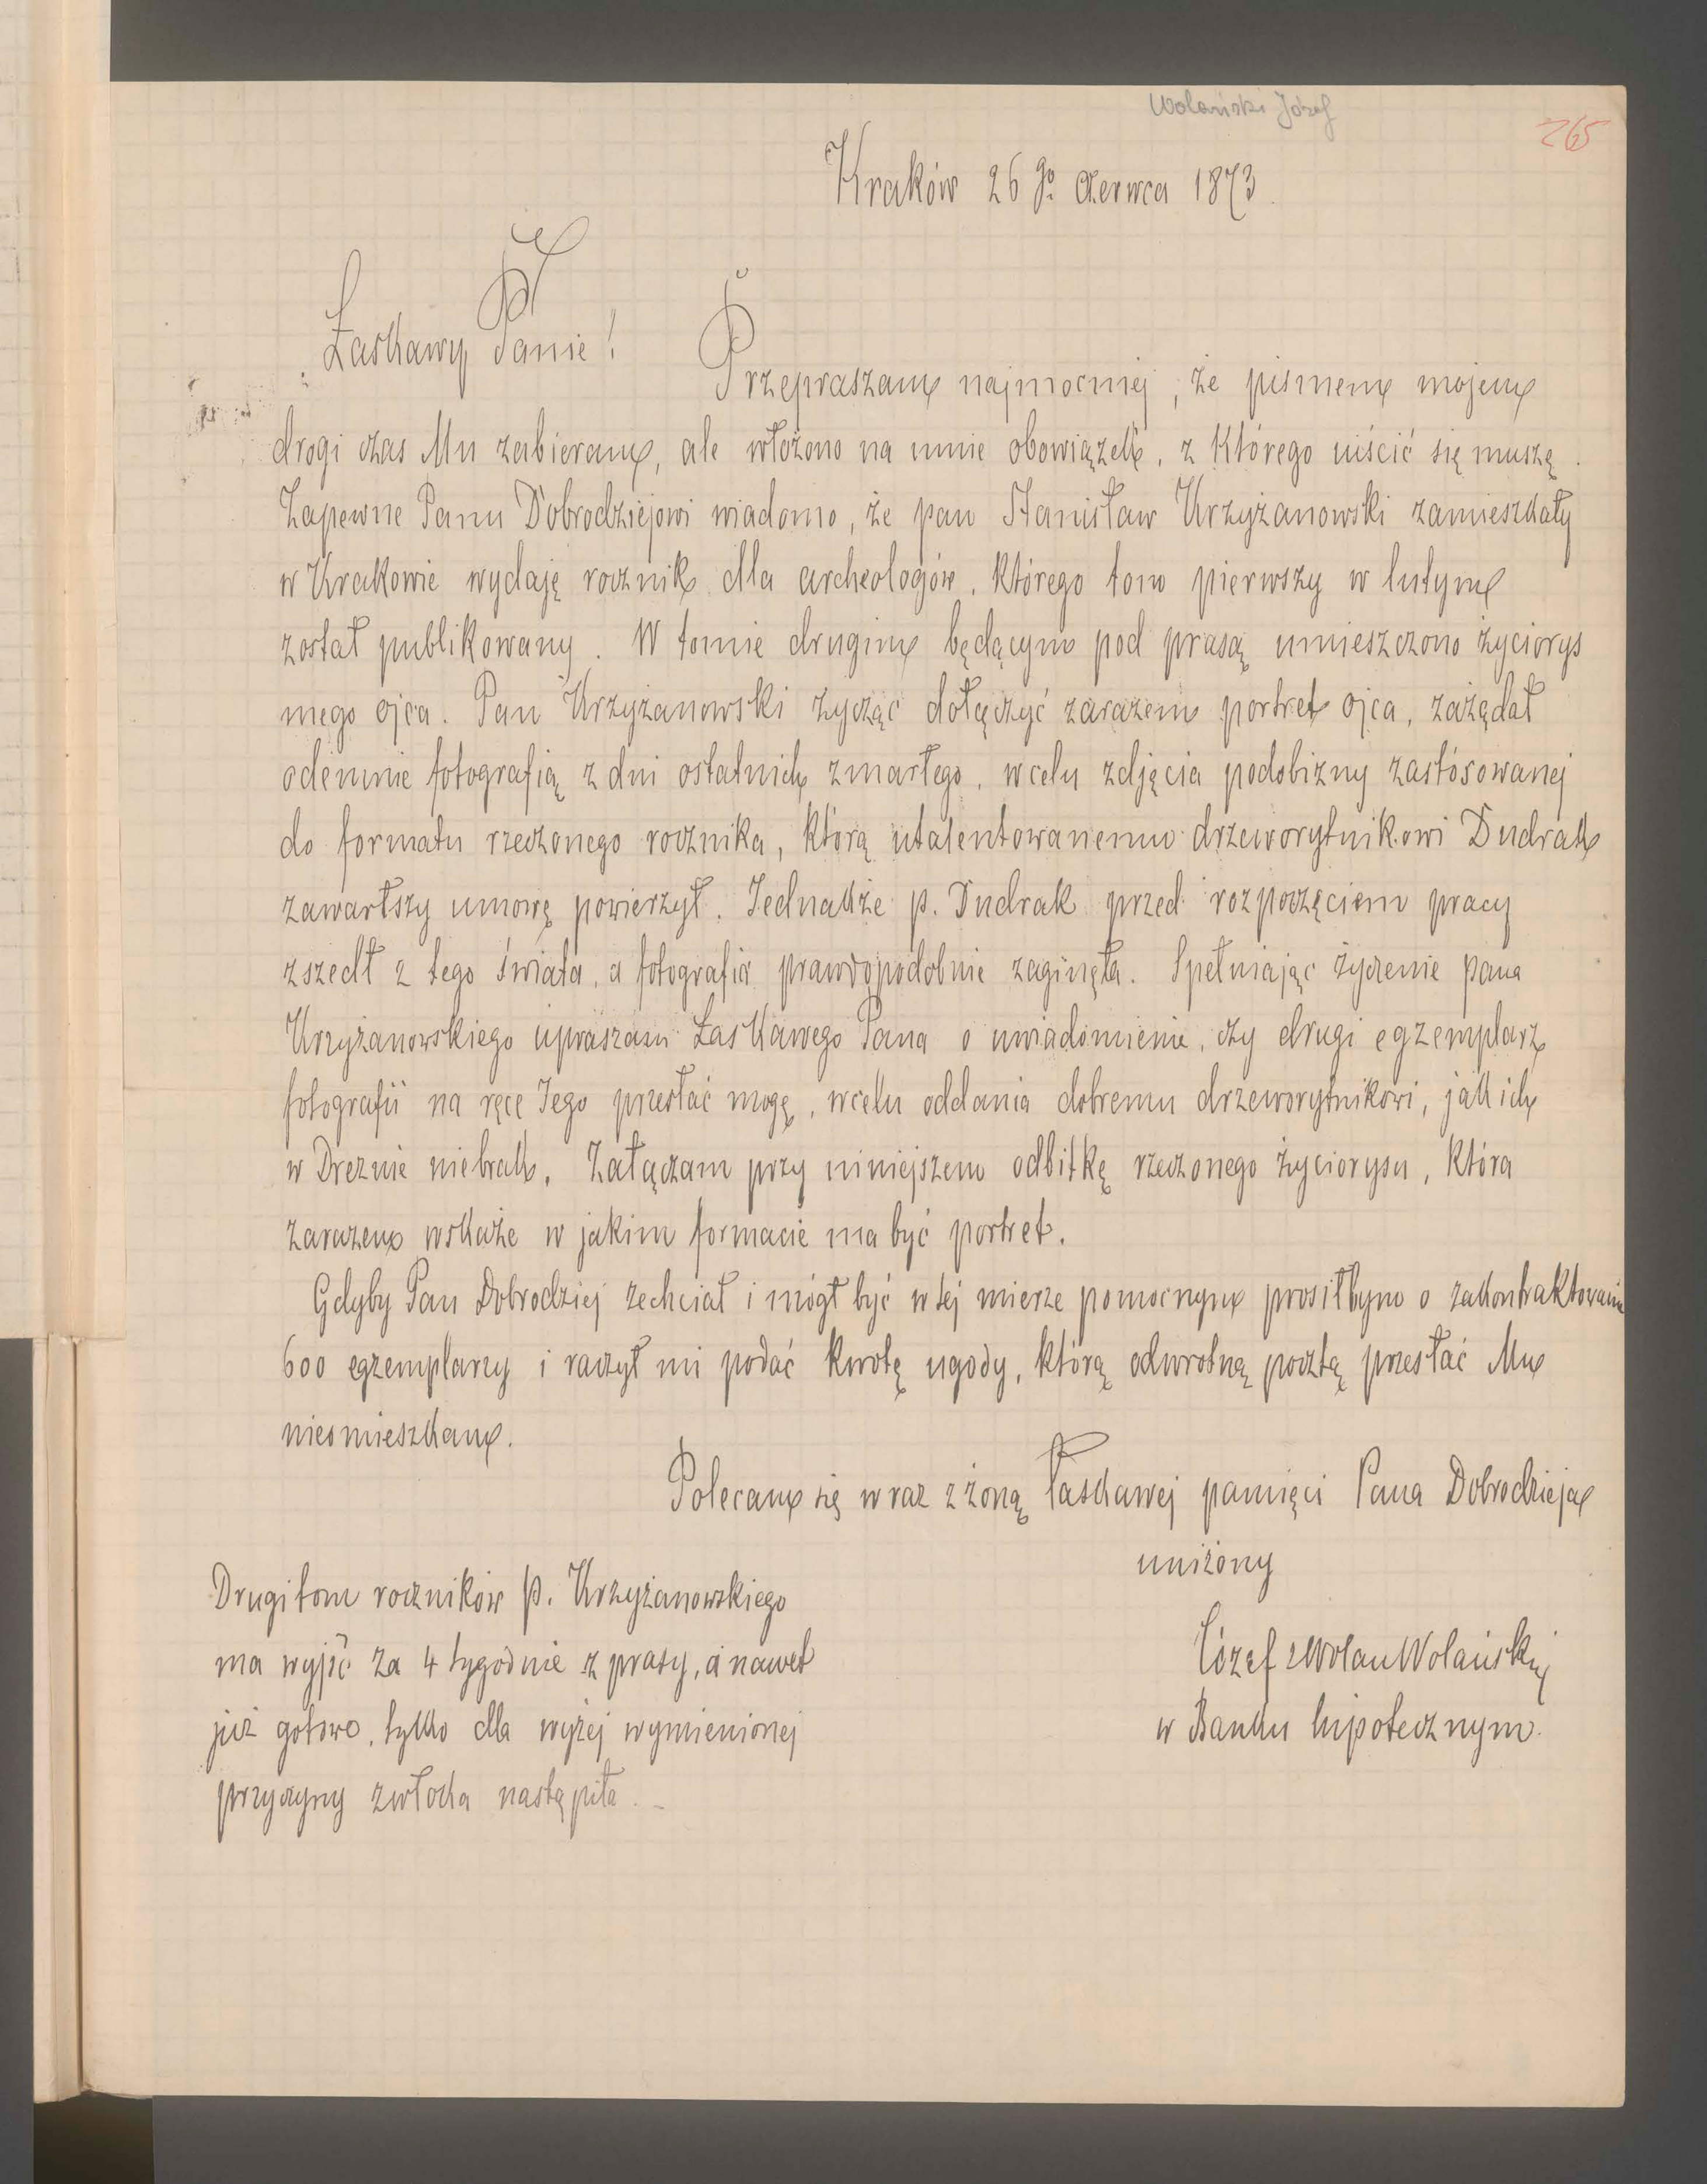 Wolański Józef
265
Kraków 26 go czerwca 1873.
Łaskawy Panie!
Przepraszam najmocniej, że pismem mojem
drogi czas Mu zabieram, ale włożono na mnie obowiązek, z którego uiścić się muszę.
Zapewne Panu Dobrodziejowi wiadomo, że pan Stanisław Krzyżanowski zamieszkały
w Krakowie wydaję rocznik dla archeologów, którego tom pierwszy w lutym
został publikowany. W tomie drugim będącym pod prasą umieszczono życiorys
mego ojca. Pan Krzyżanowski życząc dołączyć zarazem portret ojca, zażądał
odemnie fotografią z dni ostatnich zmarłego, w celu zdjęcia podobizny zastósowanej
do formatu rzeczonego rocznika, którą utalentowanemu drzeworytnikowi Dudrak
zawarłszy umowę powierzył. Jednakże p. Dudrak przed rozpoczęciem pracy
zszedł z tego świata, a fotografia prawdopodobnie zaginęła. Spełniając życzenie pana
Krzyżanowskiego upraszam Łaskawego Pana o uwiadomienie, czy drugi egzemplarz
fotografii na ręce Jego przesłać mogę, w celu oddania dobremu drzeworytnikowi, jakich
w Dreznie niebrak. Załączam przy niniejszem odbitkę rzeczonego życiorysu, która
zarazem wskaże w jakim formacie ma być portret.
Gdyby Pan Dobrodziej zechciał i mógł być w tej mierze pomocnym prosiłbym o zakontraktowanie
600 egzemplarzy i raczył mi podać kwotę ugody, którą odwrotną pocztą przesłać Mu
niesmieszkam.
Polecam się wraz z żoną łaskawej pamięci Pana Dobrodzieja
uniżony
Józef z Wolan Wolański
w Banku hipotecznym.
Drugi tom roczników p. Krzyżanowskiego
ma wyjść za 4 tygodnie z prasy, a nawet
już gotowo, tylko dla wyżej wymienionej
przyczyny zwłoka nastąpiła. -